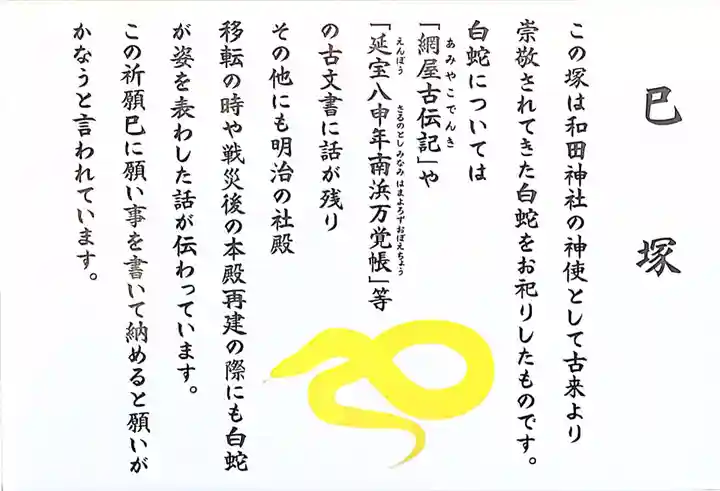 巳塚
この塚は和田神社の神使として古来より
崇敬されてきた白蛇をお祀りしたものです。
白蛇については
「網屋古伝記」や
あみやこでんき
「延宝八申年南浜万覚帳」等
えんぽう さるのとし みなみ はまよろずおぼえちょう
の古文書に話が残り
その他にも明治の社殿
移転の時や戦災後の本殿再建の際にも白蛇
が姿を表わした話が伝わっています。
この祈願巳に願い事を書いて納めると願いが
かなうと言われています。